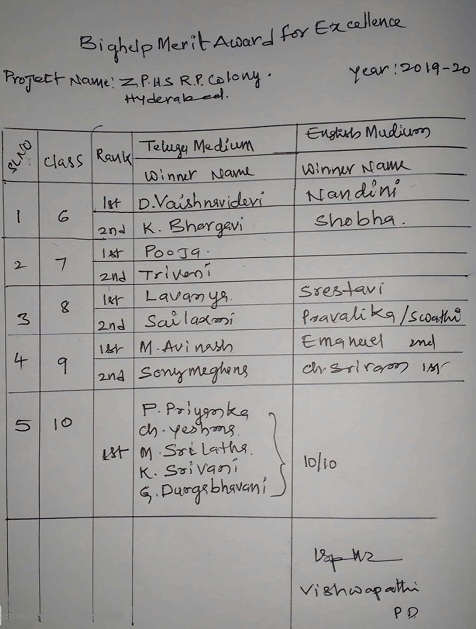 Bighelp Merit Award for Excellence
Project Name: Z.P.H.S R.P. Colony. year: 2019-20
Hyderabad.
SL.NO class Rank Telugu Medium English Medium
Winner Name Winner Name
1 6 1st D.Vaishnavidevi Nandini
2nd K. Bhargavi Shobha.
2 7 1st Pooja.
2nd Triveni
3 8 1st Lavanya. Srestavi
2nd Sailaxmi Pravalika/Swathi
4 9 1st M.Avinash Emanuel 2nd
2nd Sonymeghana ch.Sriram 1st
5 10 1st P. Priyanka
ch. yeshma
M. Sri Latha.
K. Srivani
G. Durgabhavani
10/10
Vishwapathi
PD